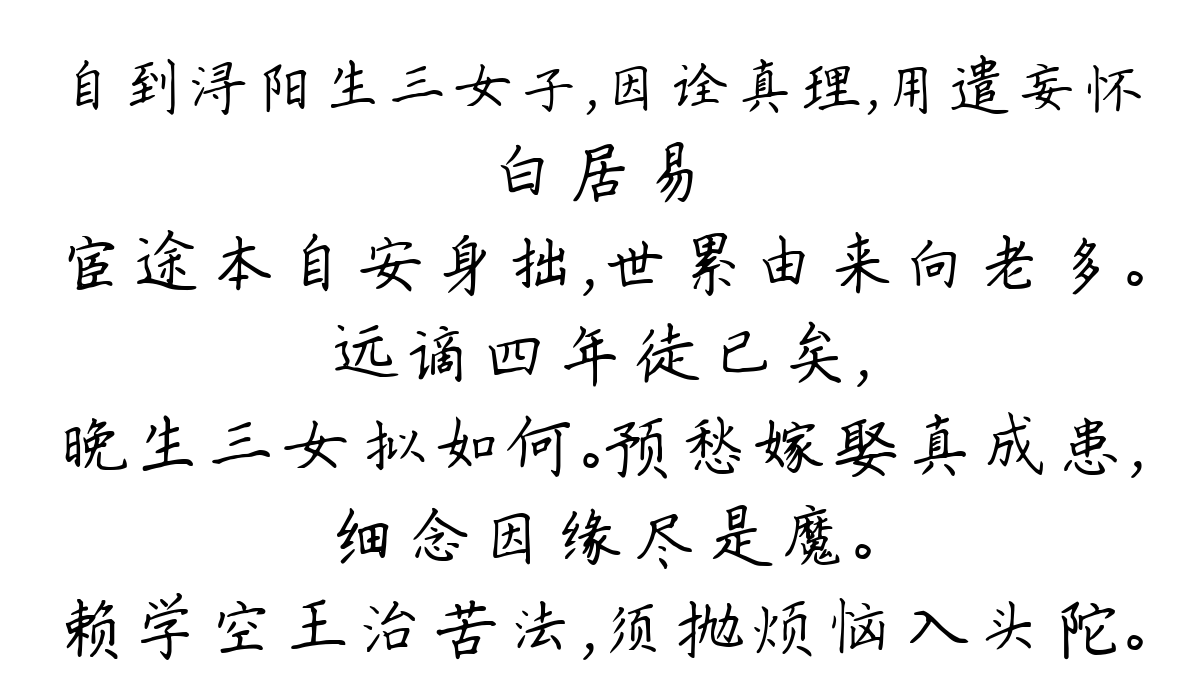 自到浔阳生三女子,因诠真理,用遣妄怀
白居易
宦途本自安身拙,世累由来向老多。
远谪四年徒已矣,
晚生三女拟如何。预愁嫁娶真成患,
细念因缘尽是魔。
赖学空王治苦法,须抛烦恼入头陀。